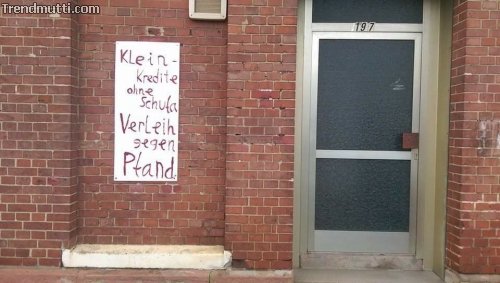 Trendmutti.com
197
Klein-
Kredite
ohne
Schufa
Verleih
gegen
Pfand.